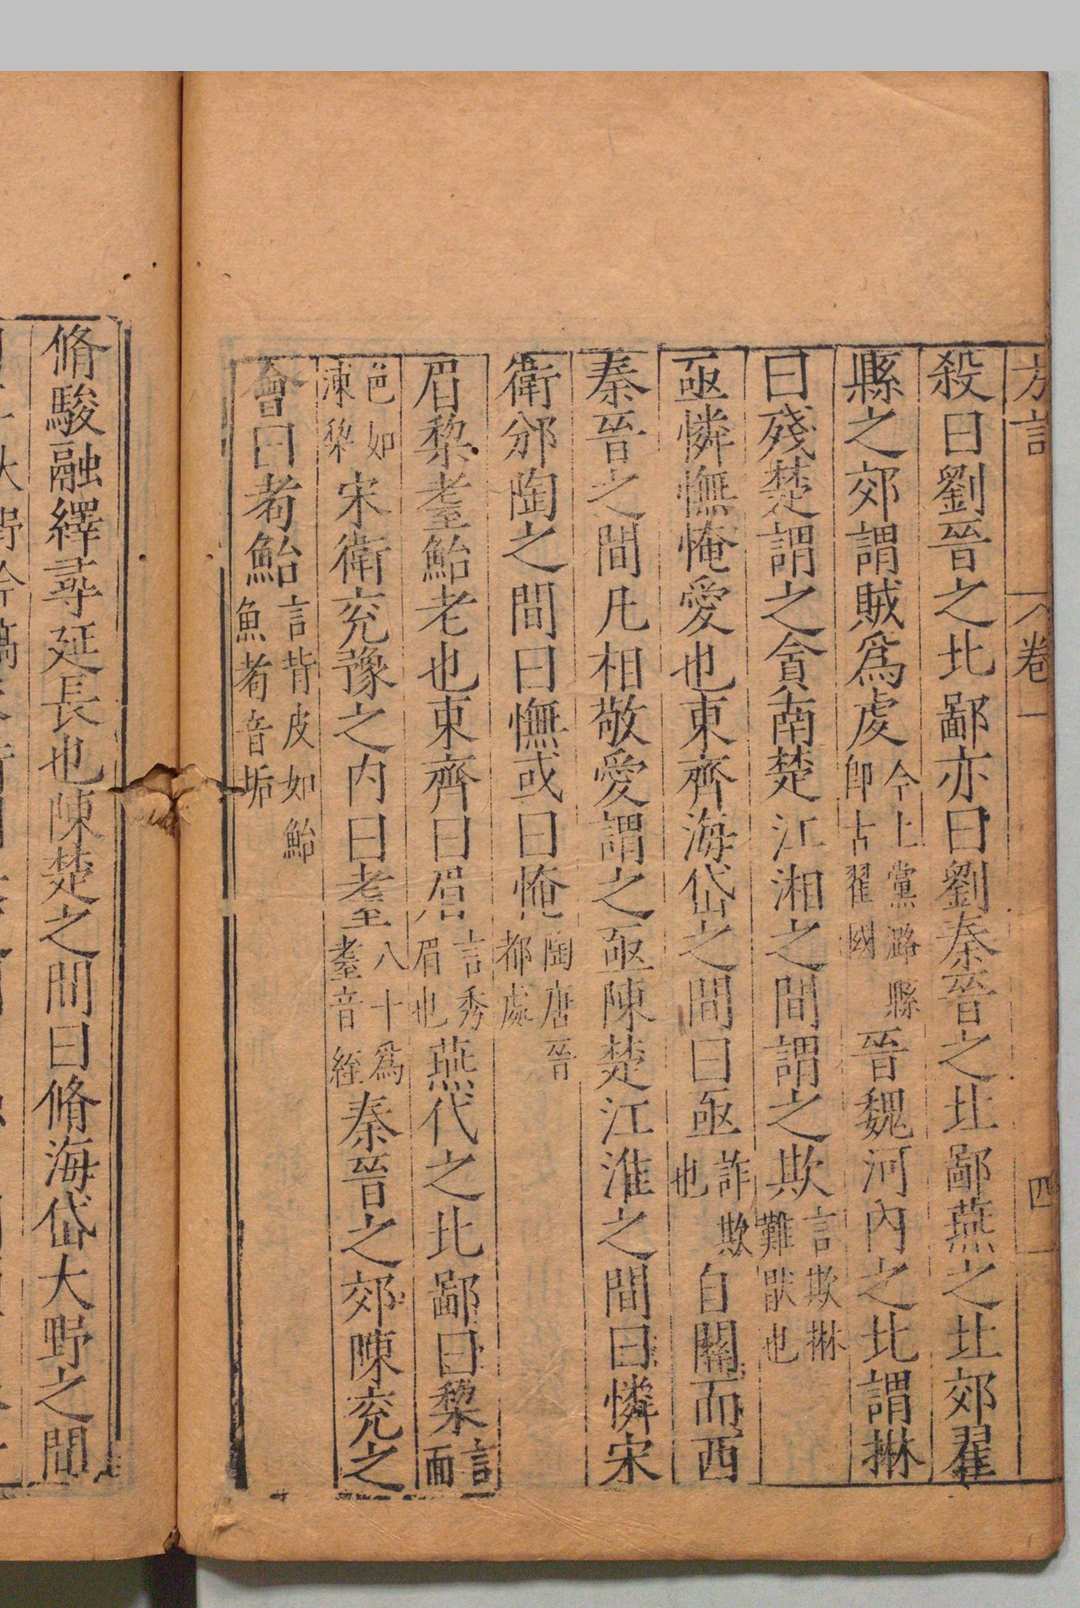 方言 卷一 四
殺曰劉晉之北鄙亦曰劉秦晉之北鄙燕之北郊翟
縣之郊謂賊爲虔今上黨潞縣即古翟國晉魏河內之北謂惏
曰殘楚謂之貪南楚江湘之間謂之欺言欺惏難猒也
亟憐憮㤿愛也東齊海岱之間曰亟詐欺也自關而西
秦晉之間凡相敬愛謂之亟陳楚江淮之間曰憐宋
衛邠陶之間曰憮或曰㤿陶唐晉都處
眉棃耋鮐老也東齊曰眉言秀眉也燕代之北鄙曰棃言面
色如凍棃宋衛兖豫之內曰耋八十爲耋音絰秦晉之郊陳兖之
會曰耇鮐言背皮如鮐魚耇音垢
脩駿融繹尋延長也陳楚之間曰脩海岱大野之間